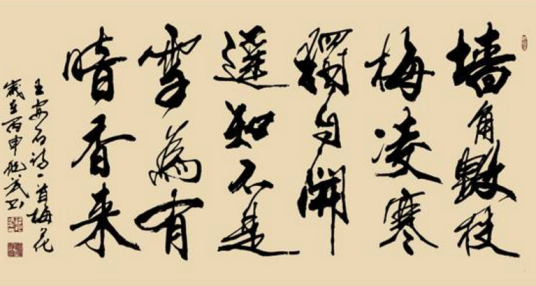 墙角數枝
梅凌寒
獨自開
遥知不是
雪為有
暗香来
王安石诗一首梅花
歲在丙申书